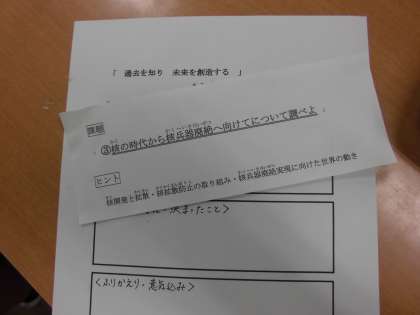 「 過去を知り 未来を創造する 」
課題
③核の時代から核兵器廃絶へ向けてについて調べよ
ヒント
核開発と拡散・核拡散防止の取り組み・核兵器廃絶実現に向けた世界の動き
決まったこと>
<ふりかえり・意気込み>